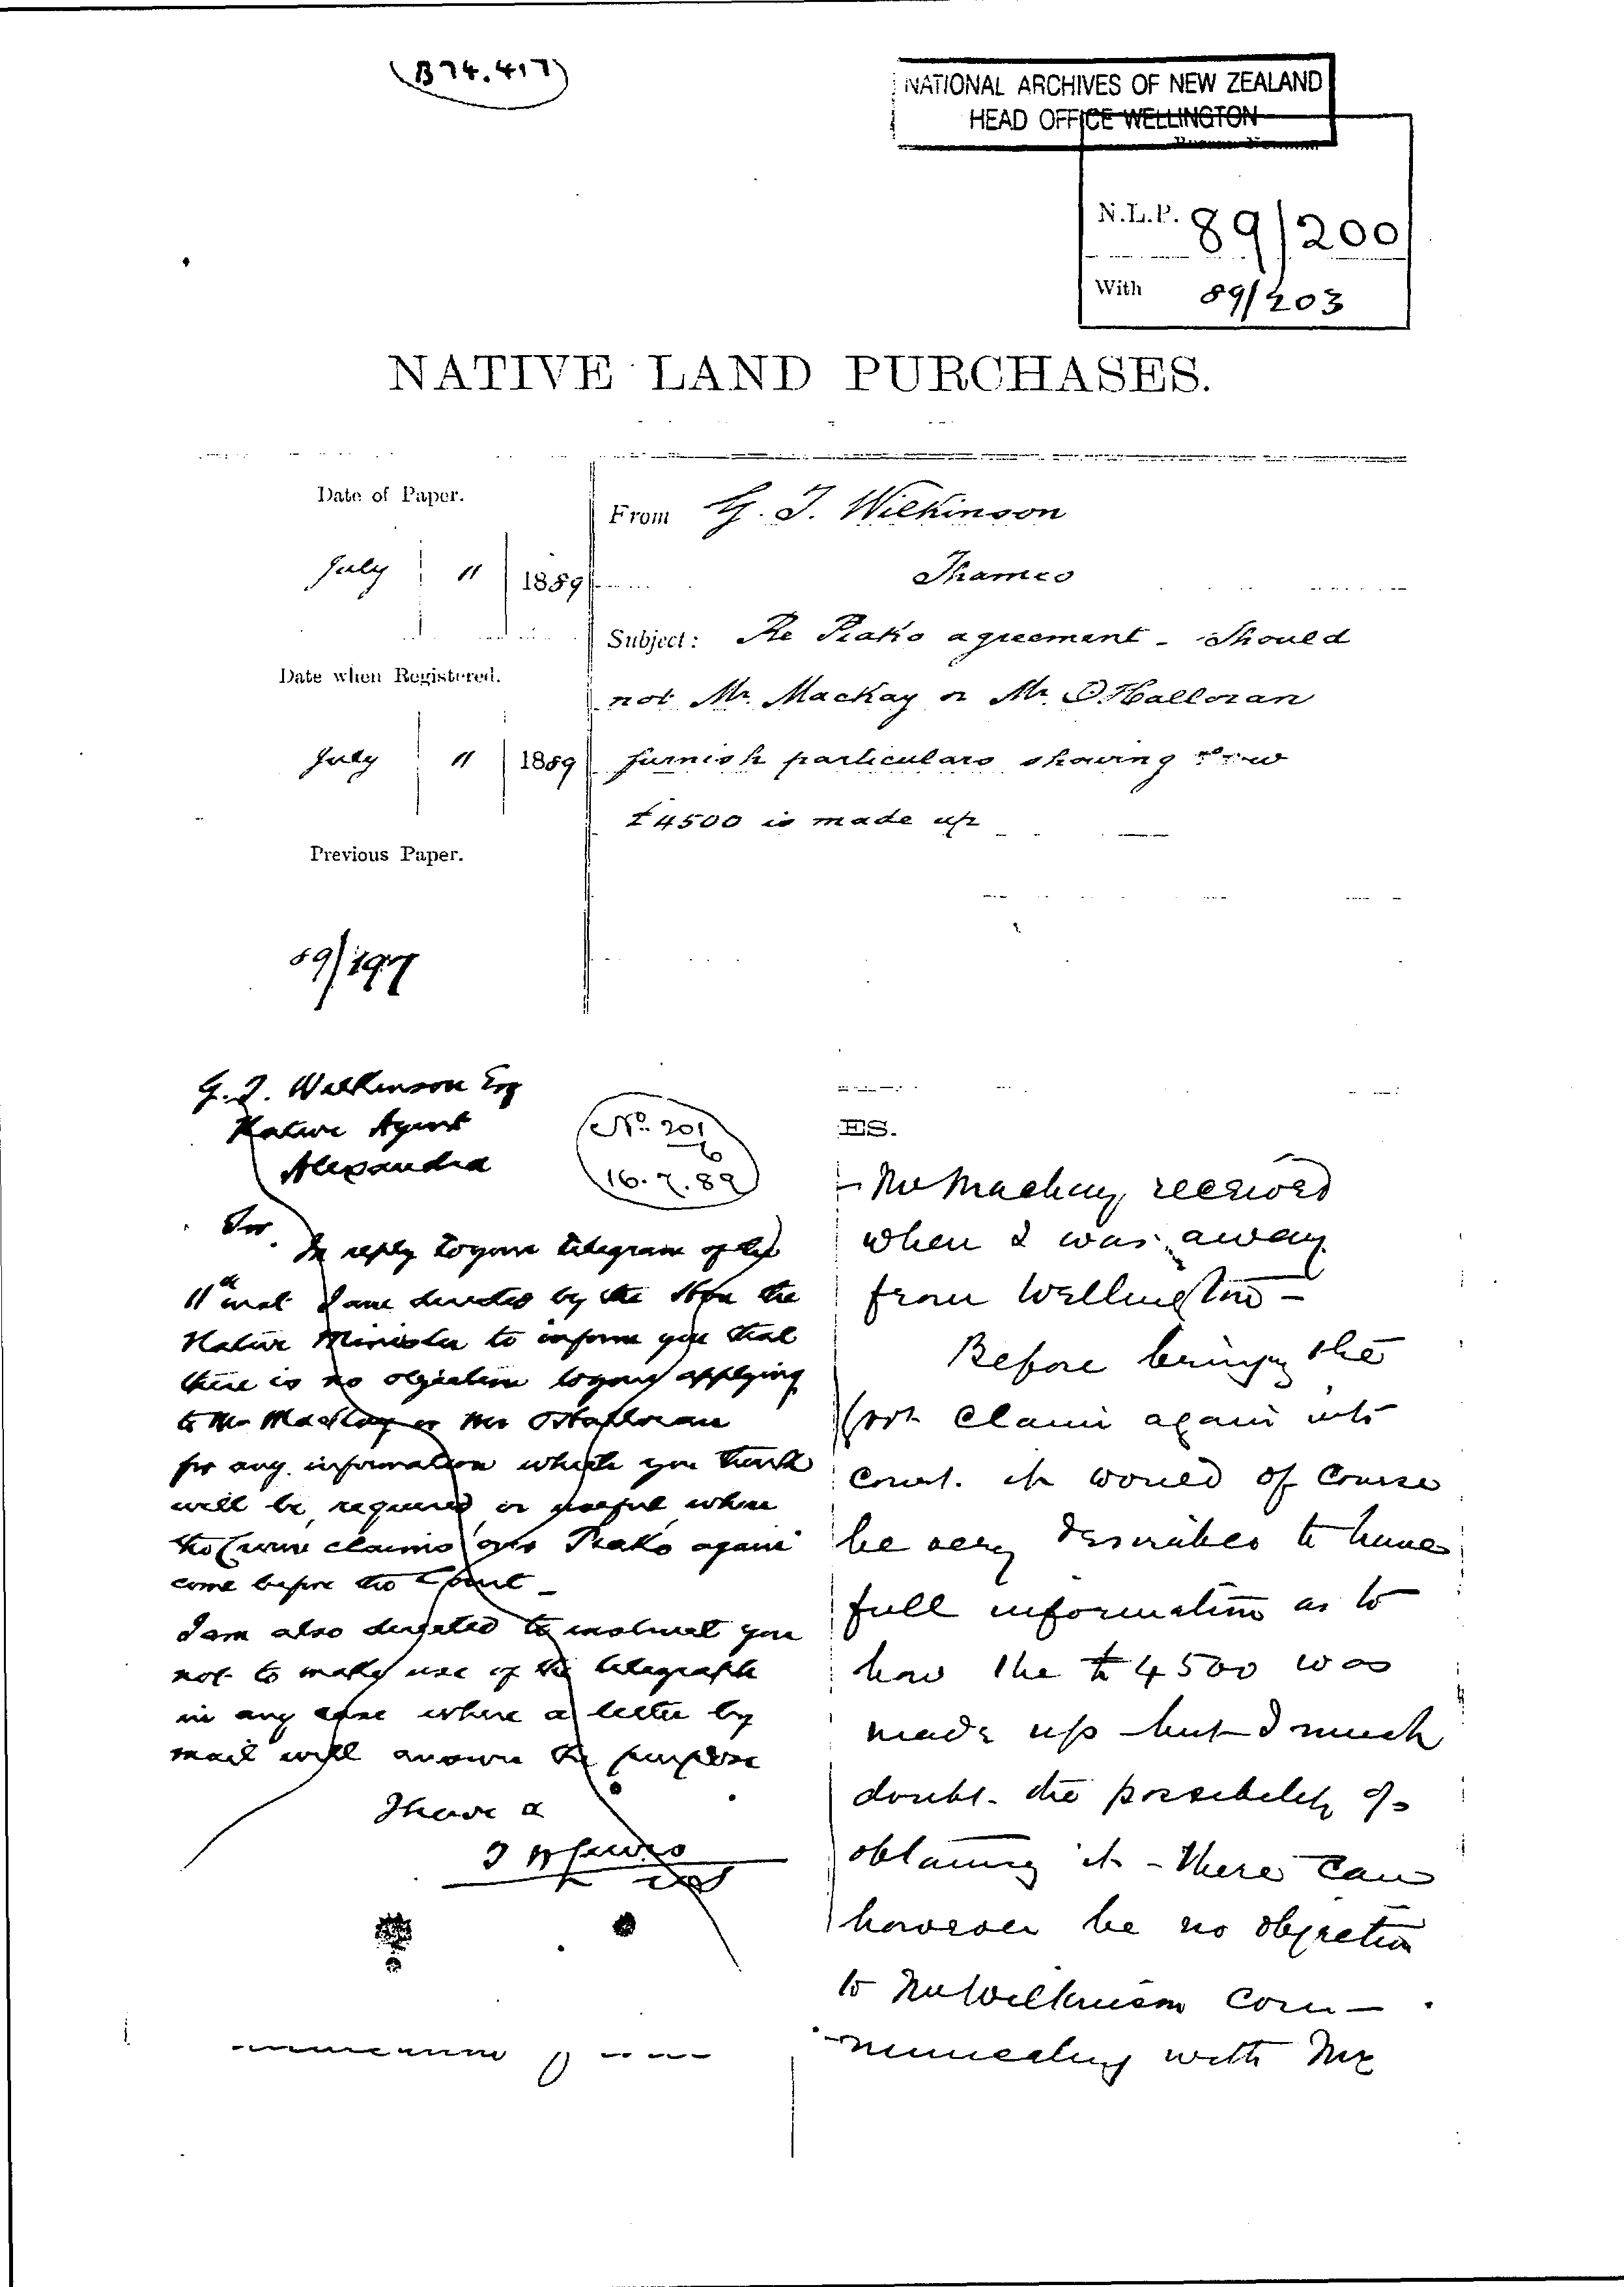 B 74.417
NATIONAL ARCHIVES OF NEW ZEALAND
HEAD OFFICE WELLINGTON
N.L.P. 89/200
With 89/203
NATIVE LAND PURCHASES.
Date of Paper.
July 11 1889
Date when Registered.
July 11 1889
Previous Paper.
89/197
From G. T. Wilkinson
Thames
Subject: Re Piako agreement - Should
not Mr. Mackay or Mr. O'Halloran
furnish particulars showing how
£4500 is made up
G. T. Wilkinson Esq
Native Agent
Alexandra
No. 201/6
16.7.89
Sir.
In reply to your telegram of the
11th inst I am directed by the Hon the
Native Minister to inform you that
there is no objection to your applying
to Mr Mackay or Mr O'Halloran
for any information which you think
will be required or useful when
the Crown claims over Piako again
come before the Court -
I am also directed to instruct you
not to make use of the telegraph
in any case where a letter by
mail will answer the purpose
I have &
T W Lewis
ES.
Mr Mackay received
when I was away
from Wellington -
Before bringing the
Govt claim again into
Court. it would of course
be very desirable to have
full information as to
how the £4500 was
made up - but I much
doubt the possibility of
obtaining it - There can
however be no objection
to Mr Wilkinson com-
municating with Mr